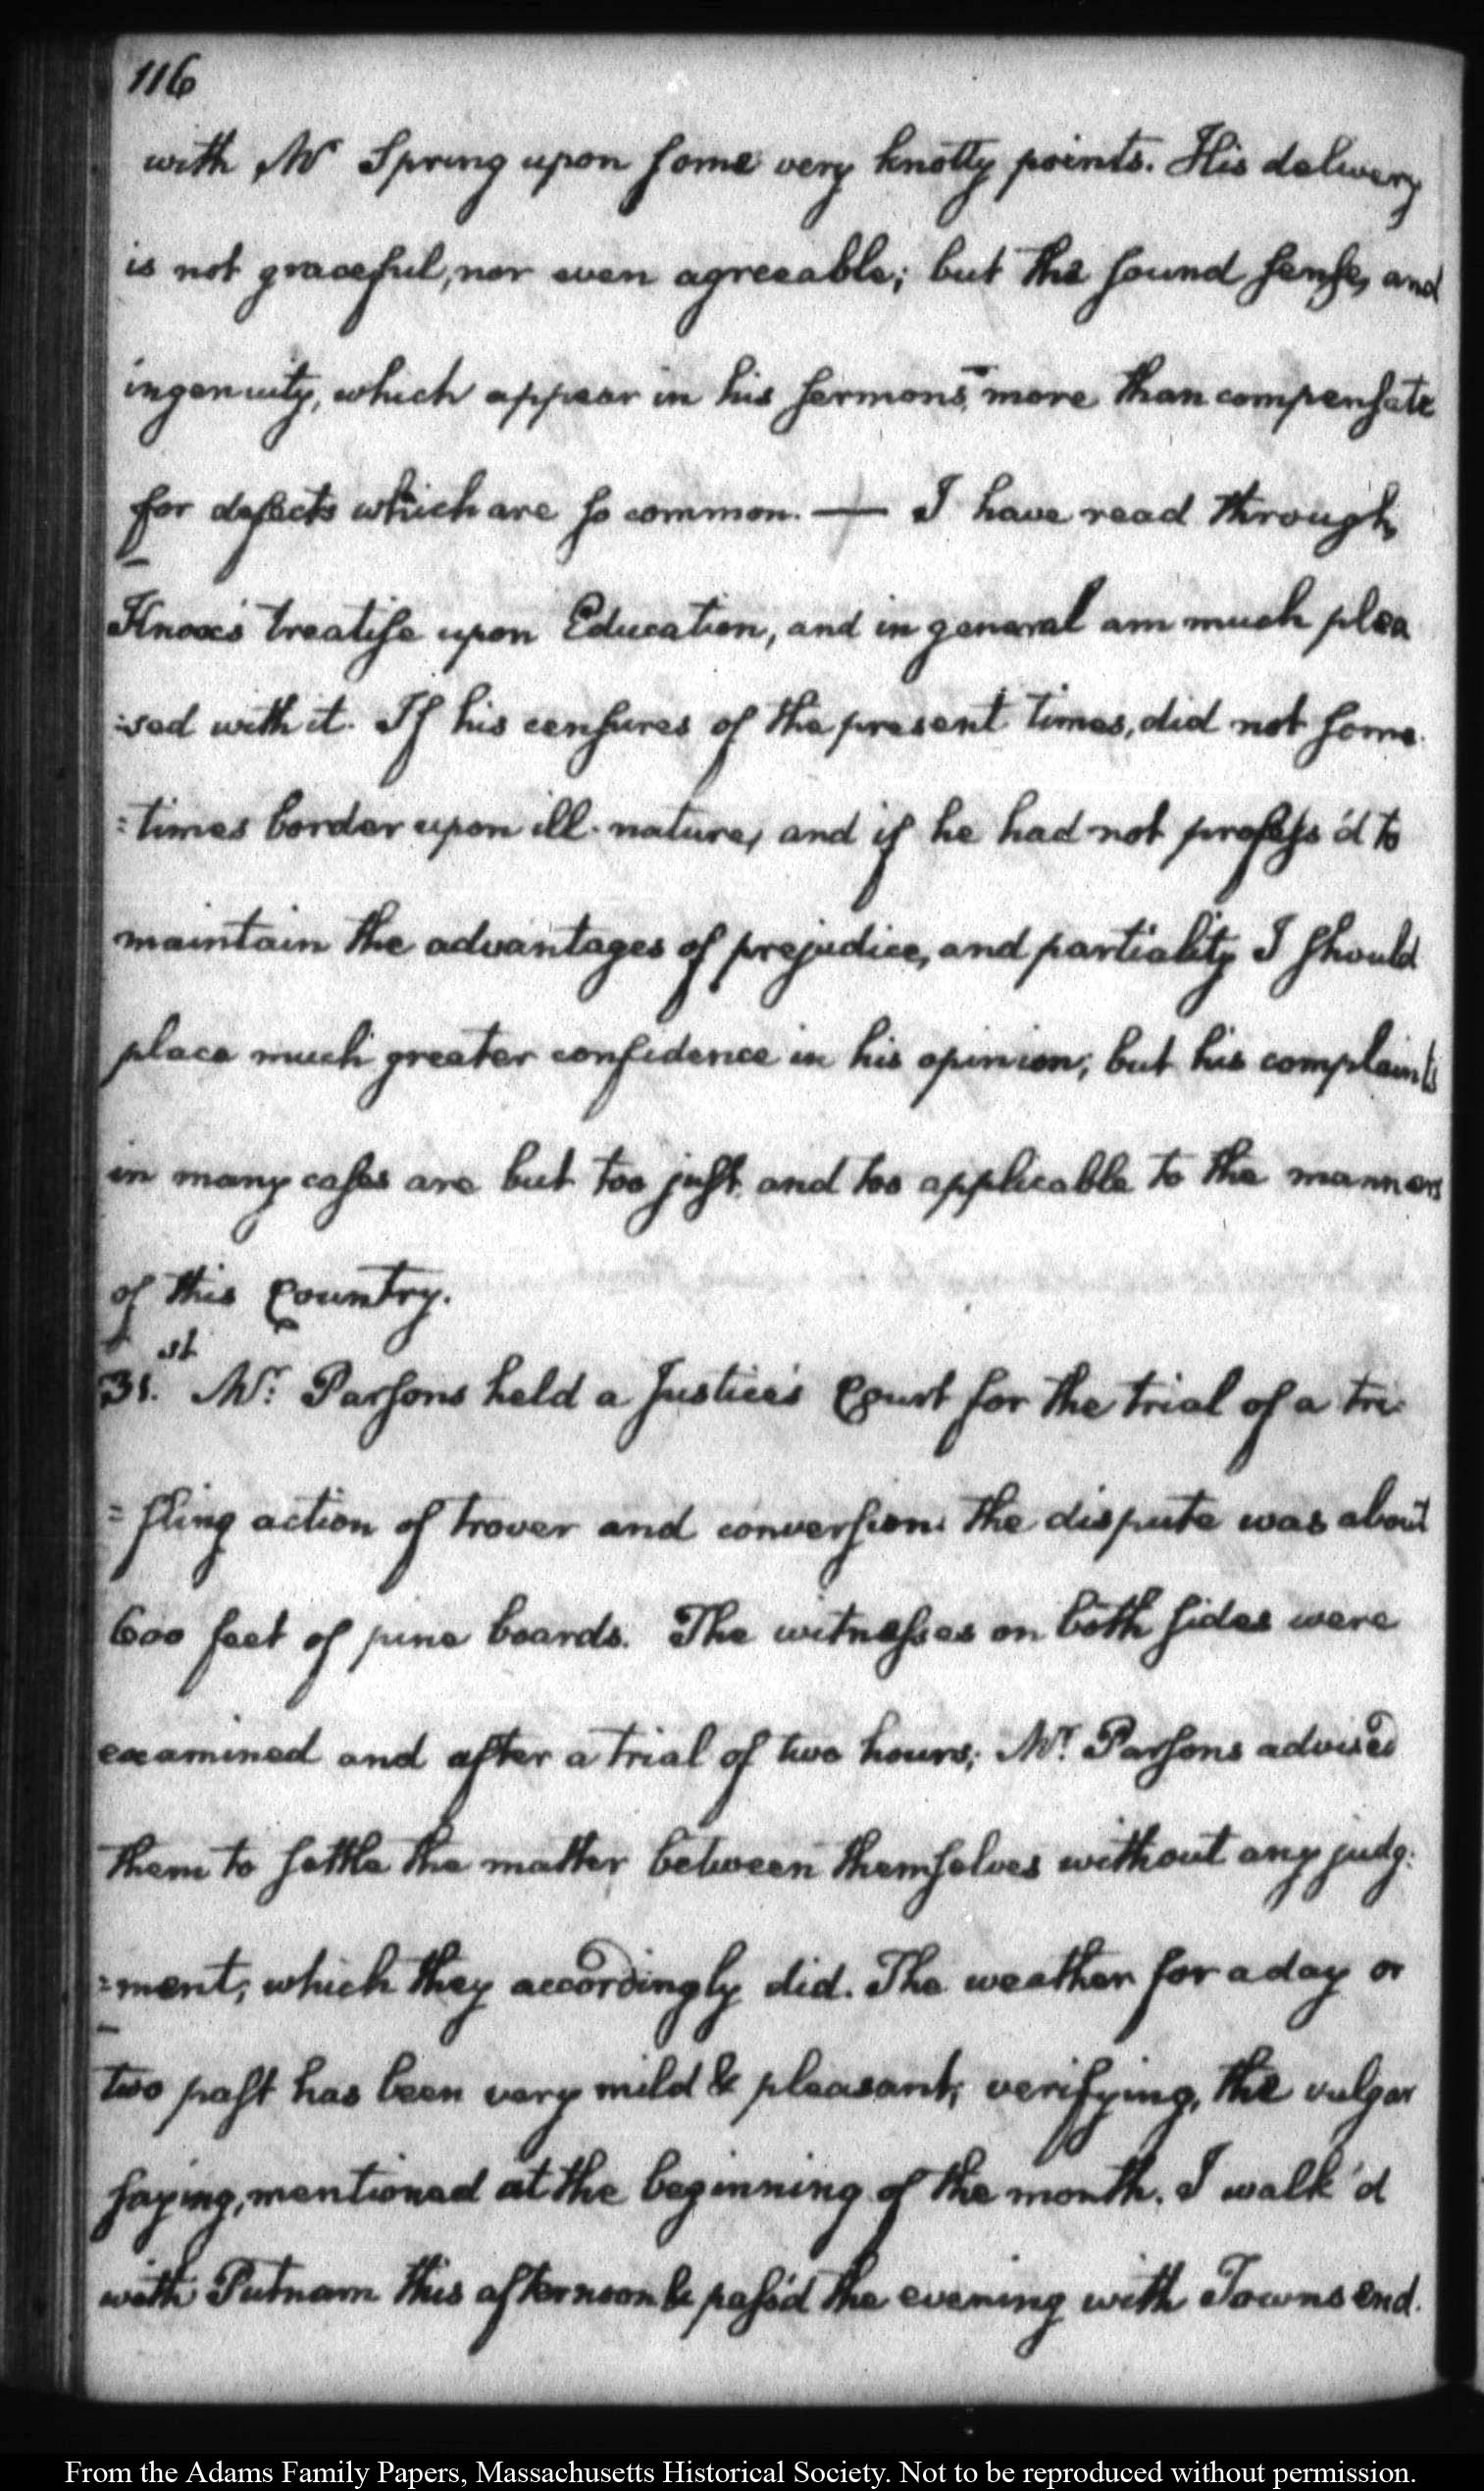 116
with Mr Spring upon some very knotty points. His delivery
is not graceful, nor even agreeable; but the sound sense, and
ingenuity, which appear in his sermons, more than compensate
for defects which are so common. — I have read through
Knox's treatise upon Education, and in general am much plea
:sed with it. If his censures of the present times, did not some:
:times border upon ill-nature, and if he had not profess'd to
maintain the advantages of prejudice, and partiality I should
place much greater confidence in his opinion; but his complaints
in many cases are but too just, and too applicable to the manners
of this Country.
31.st Mr. Parsons held a Justice's Court for the trial of a tri:
=fling action of trover and conversion: the dispute was about
600 feet of pine boards. The witnesses on both sides were
examined and after a trial of two hours; Mr. Parsons advised
them to settle the matter between themselves without any judg:
:ment; which they accordingly did. The weather for a day or
two past has been very mild & pleasant; verifying, the vulgar
saying, mentioned at the beginning of the month. I walk'd
with Putnam this afternoon & pass'd the evening with Townsend.
From the Adams Family Papers, Massachusetts Historical Society. Not to be reproduced without permission.